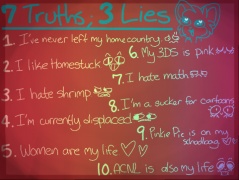 7 Truths, 3 Lies
1. I've never left my home country
2. I like Homestuck
3. I hate shrimp
4. I'm currently displaced
5. Women are my life
6. My 3DS is pink
7. I hate math
8. I'm a sucker for cartoons
9. Pinkie Pie is on my schoolbag
10. ACNL is also my life